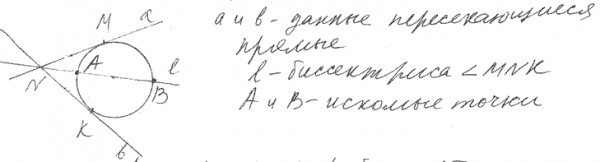 M a
a и b - данные пересекающиеся
прямые
A l
l - биссектриса ∠MNK
N B
A и B - искомые точки
K
b